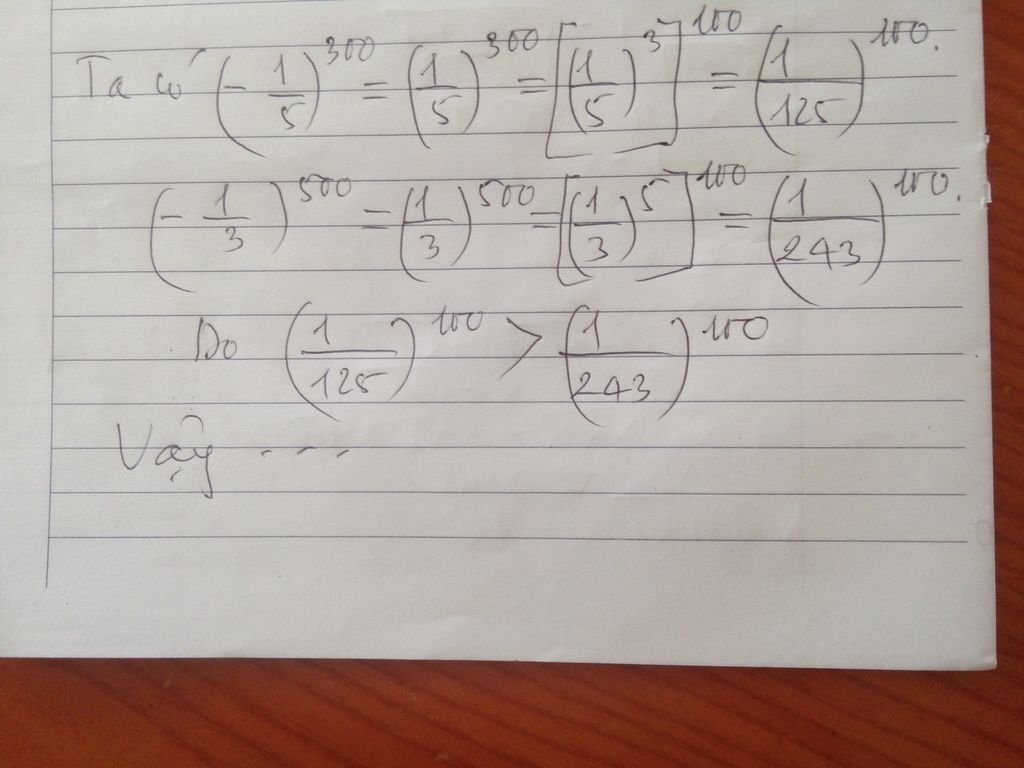 Ta có (- 1/5)^300 = (1/5)^300 = [(1/5)^3]^100 = (1/125)^100.
(- 1/3)^500 = (1/3)^500 = [(1/3)^5]^100 = (1/243)^100.
Do (1/125)^100 > (1/243)^100
Vậy ----